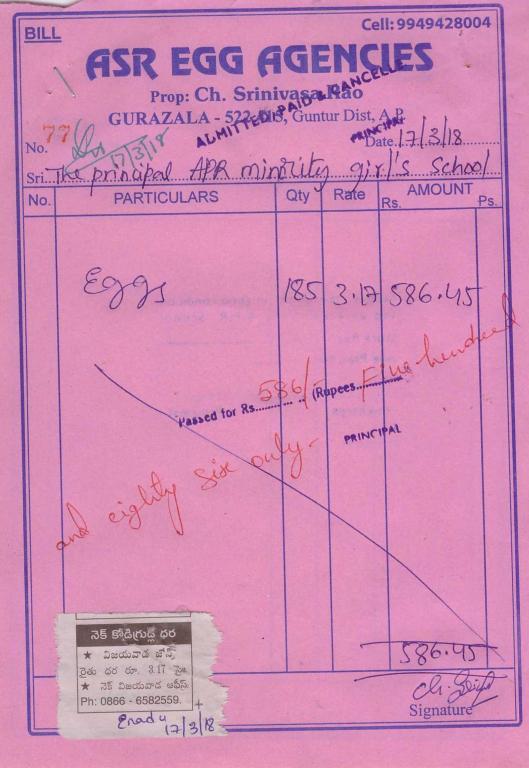 BILL
Cell: 9949428004
ASR EGG AGENCIES
Prop: Ch. Srinivasa Rao
GURAZALA - 522 Guntur Dist, A.P.
ADMITTED PAID & CANCELLE
PRINCIPAL
No. 77 Date 17/3/18
17/3/18
Sri. The principal APR minority girl's school
No. PARTICULARS Qty Rate AMOUNT
Rs. Ps.
Eggs 185 3.17 586.45
Passed for Rs. 586/- (Rupees Five hundred
and eighty six only-
PRINCIPAL
586.45
Signature
నెక్ కోడిగ్రుడ్ల ధర
★ విజయవాడ జోన్
రైతు ధర రూ. 3.17 పై
★ నెక్ విజయవాడ ఆఫీస్
Ph: 0866 - 6582559.
Enadu
17/3/18